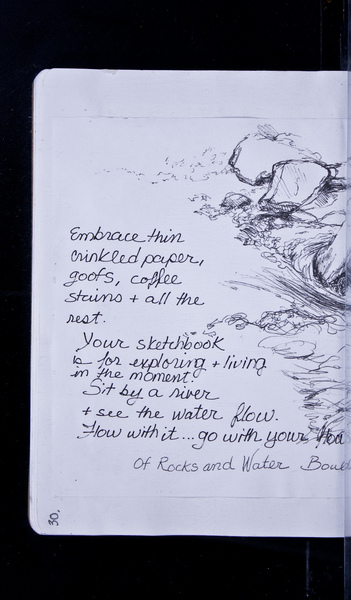 Embrace thin
crinkled paper,
goofs, coffee
stains + all the
rest.
Your sketchbook
is for exploring + living
in the moment.
Sit by a river
+ see the water flow.
Flow with it... go with your
Of Rocks and Water
30.